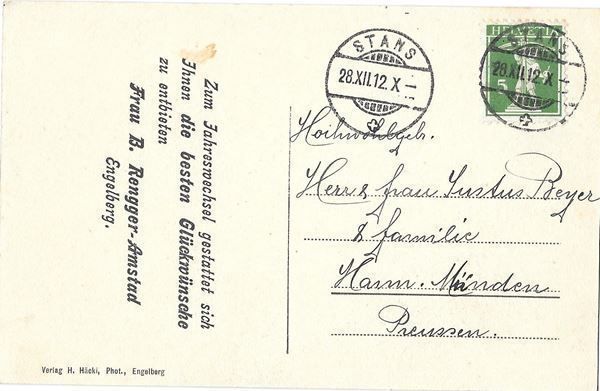 Zum Jahreswechsel gestattet sich
Ihnen die besten Glückwünsche
zu entbieten
Frau B. Rongger-Amstad
Engelberg.
Verlag H. Häcki, Phot., Engelberg
STANS
28.XII.12.X
HELVETIA
5
STANS
28.XII.12.X
Hochwohlgeb.
Herr & frau Justus Beyer
& familie
Hann. Münden
Preussen.